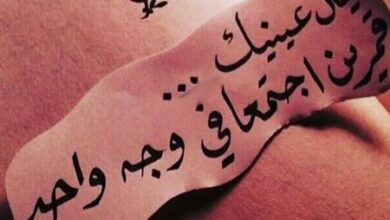 عينيك ...
قمرين اجتمعا في وجه واحد